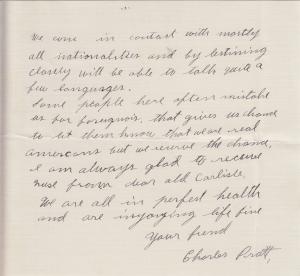 We come in contact with mostly
all nationalities and by listining
closely will be able to talk quite a
few languages.
Some people here often mistake
us for foreigners, that gives us chance
to let them know that we are real
americans but we reserve the chance,
I am always glad to receive
news from dear old Carlisle.
We are all in perfect health
and are injoying life fine
Your friend
Charles Pratt,